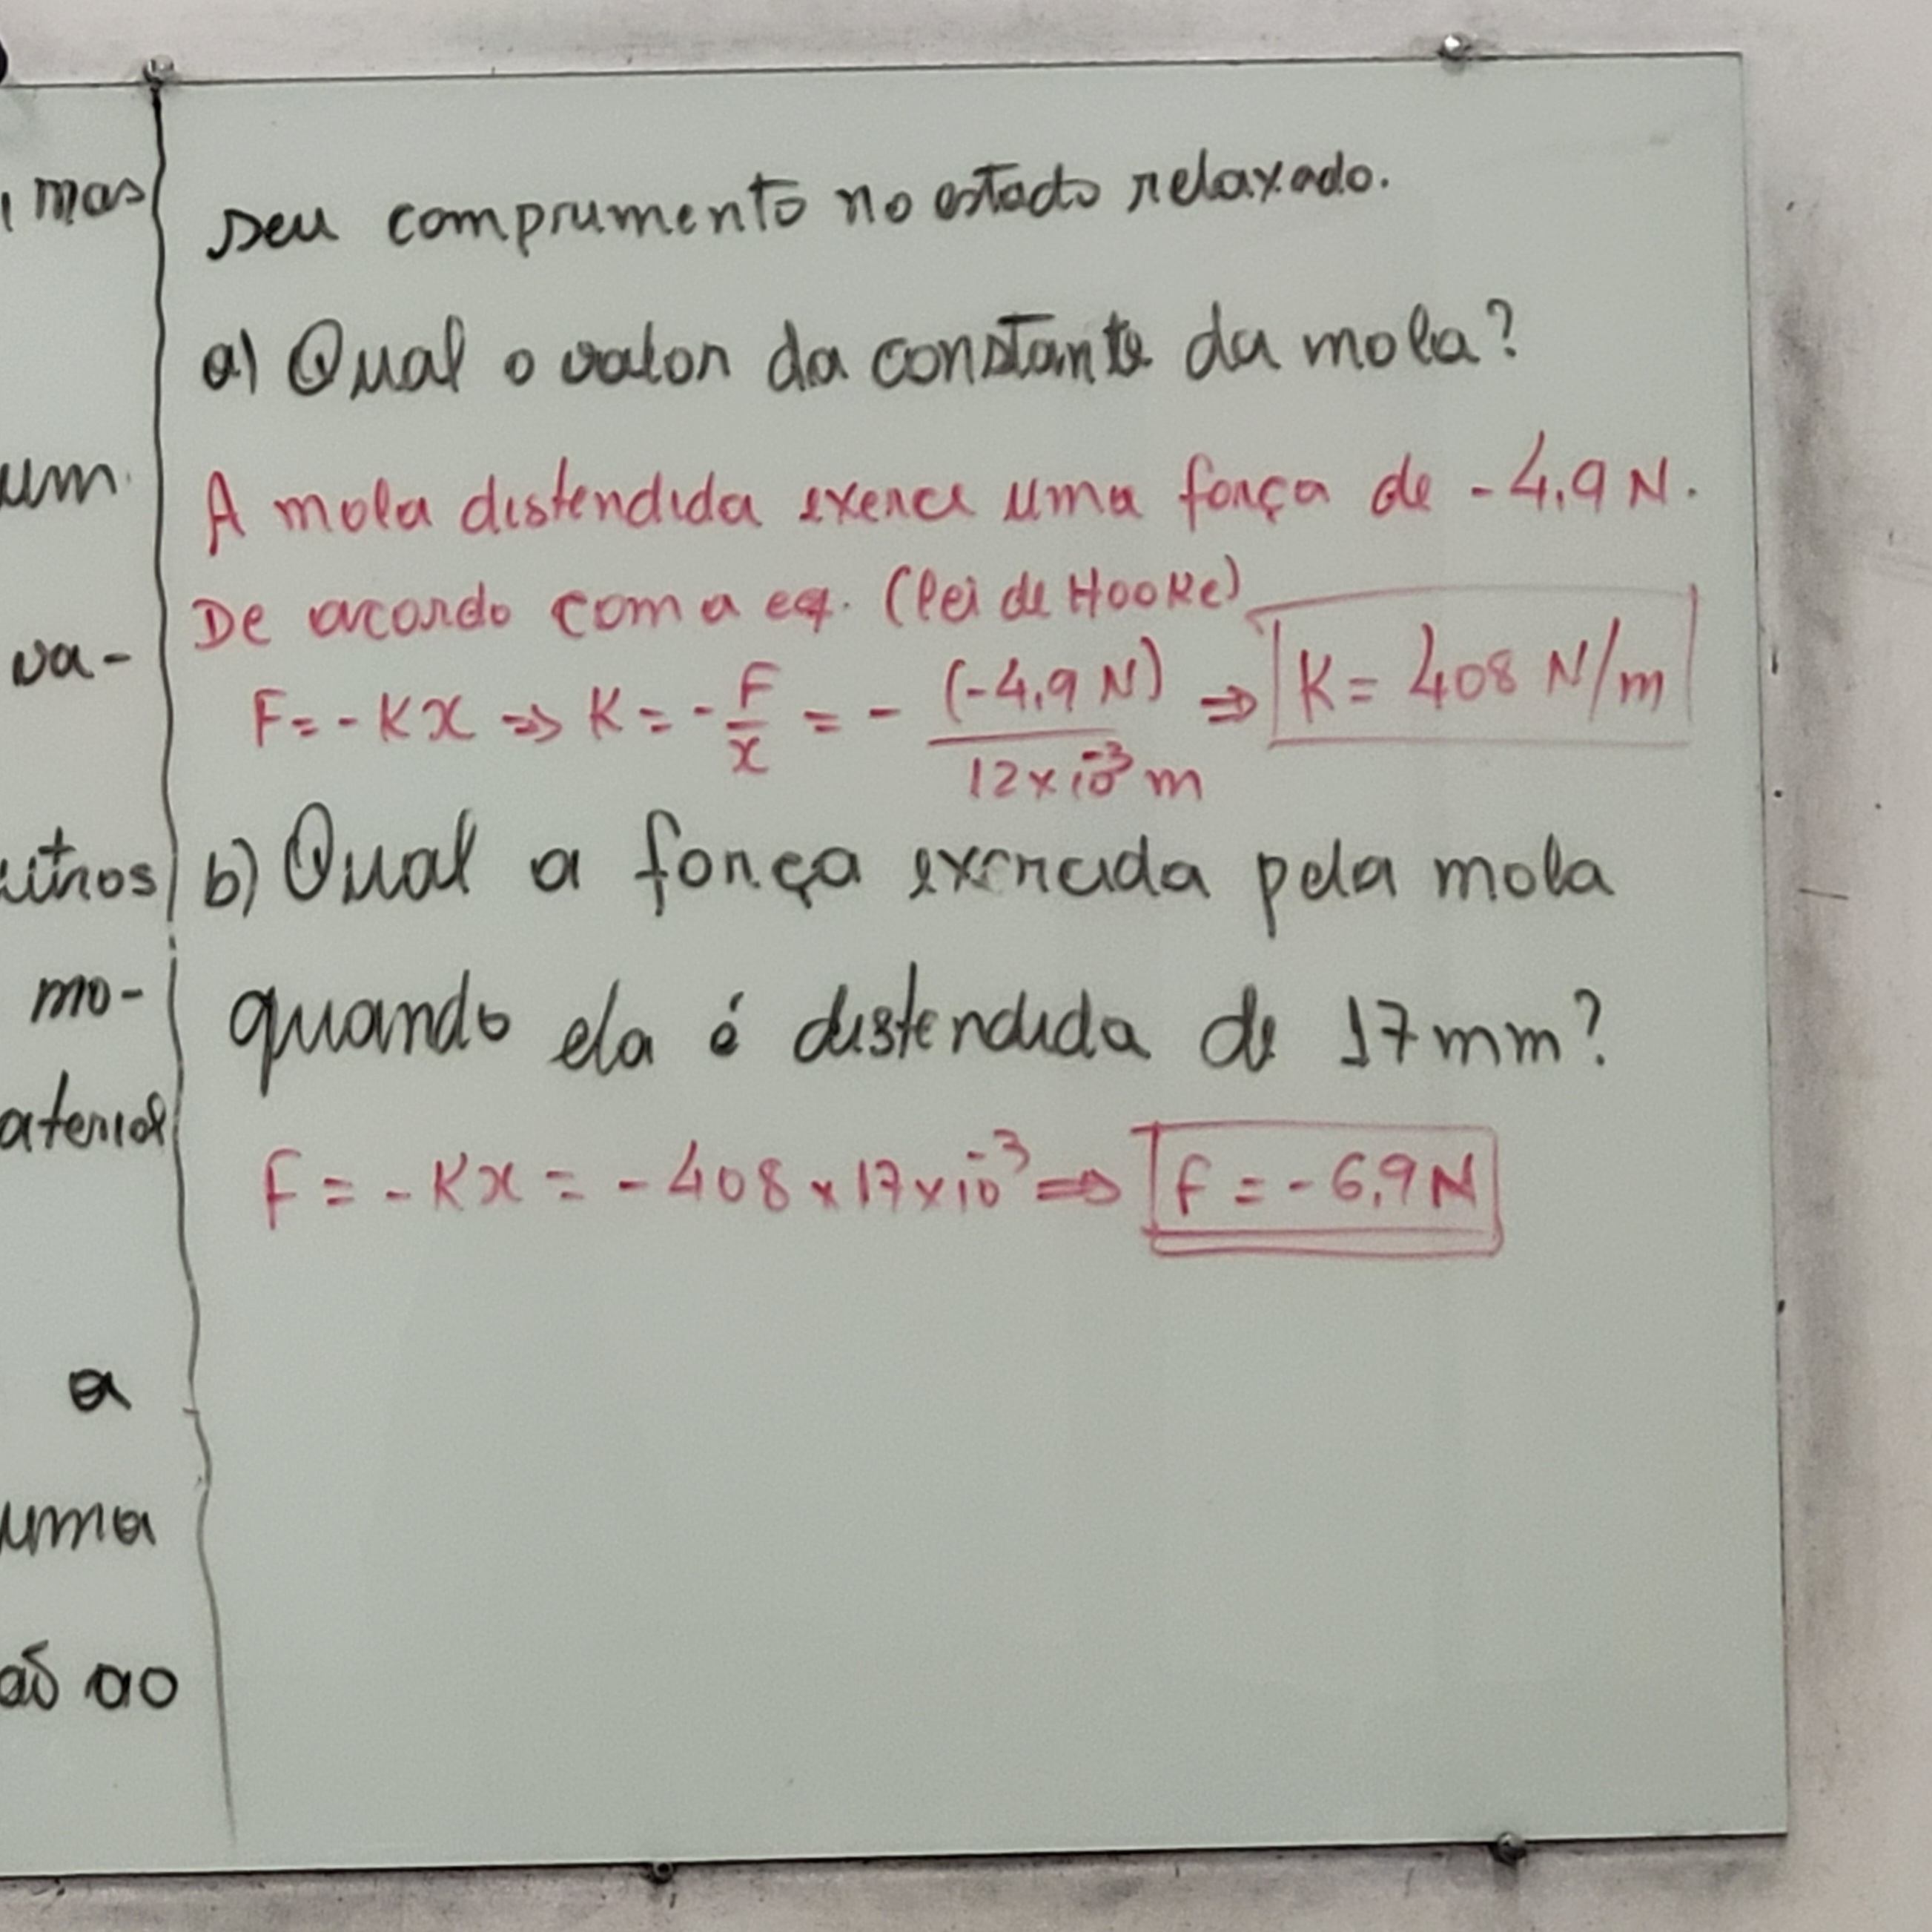 mas
um
va-
utros
mo-
aterial
a
uma
ão ao
seu comprimento no estado relaxado.
a) Qual o valor da constante da mola?
A mola distendida exerce uma força de -4,9 N.
De acordo com a eq. (lei de Hooke)
F = -Kx ⇒ K = -F/x = - (-4,9 N)/(12×10⁻³ m) ⇒ K = 408 N/m
b) Qual a força exercida pela mola
quando ela é distendida de 17mm?
F = -Kx = -408 × 17×10⁻³ ⇒ F = -6,9 N